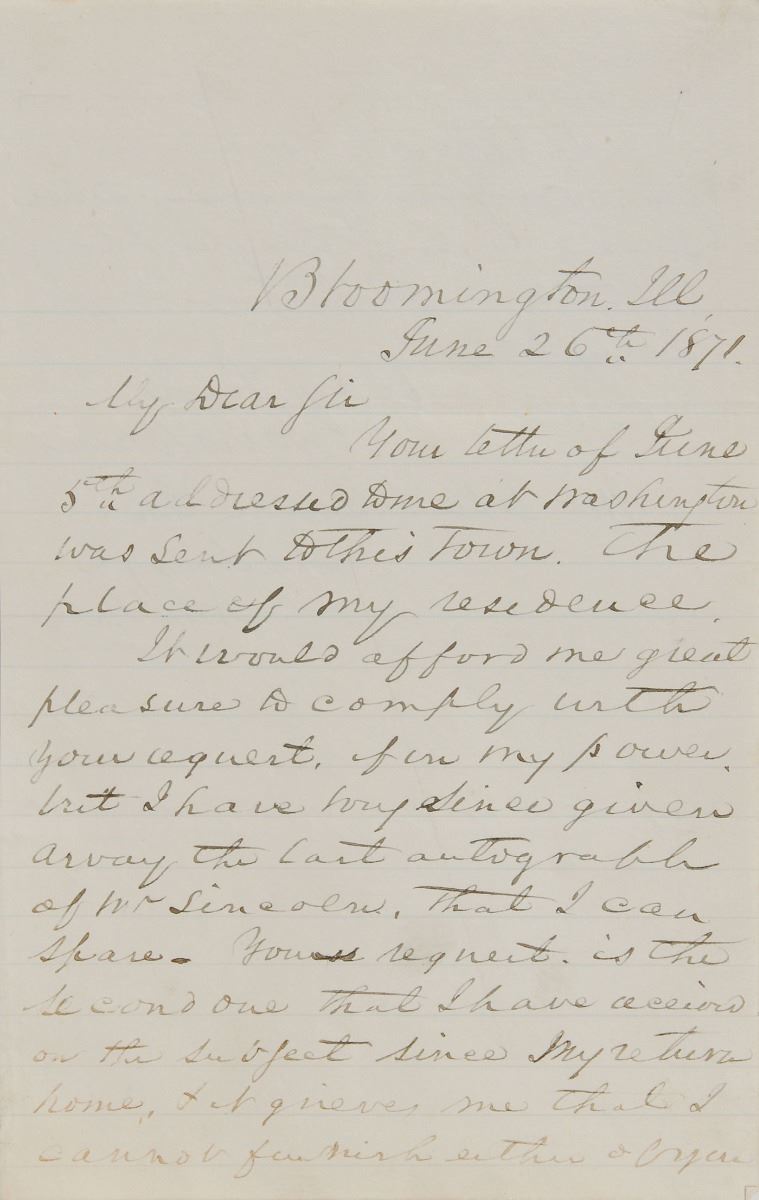 Bloomington, Ill
June 26th 1871.
My Dear Sir
Your letter of June
5th addressed to me at Washington
was sent to this town. The
place of my residence.
It would afford me great
pleasure to comply with
your request, if in my power.
but I have long since given
away the last autograph
of Mr Lincoln, that I can
spare - Your request. is the
second one that I have received
on the subject since my return
home, & it grieves me that I
cannot furnish either of you